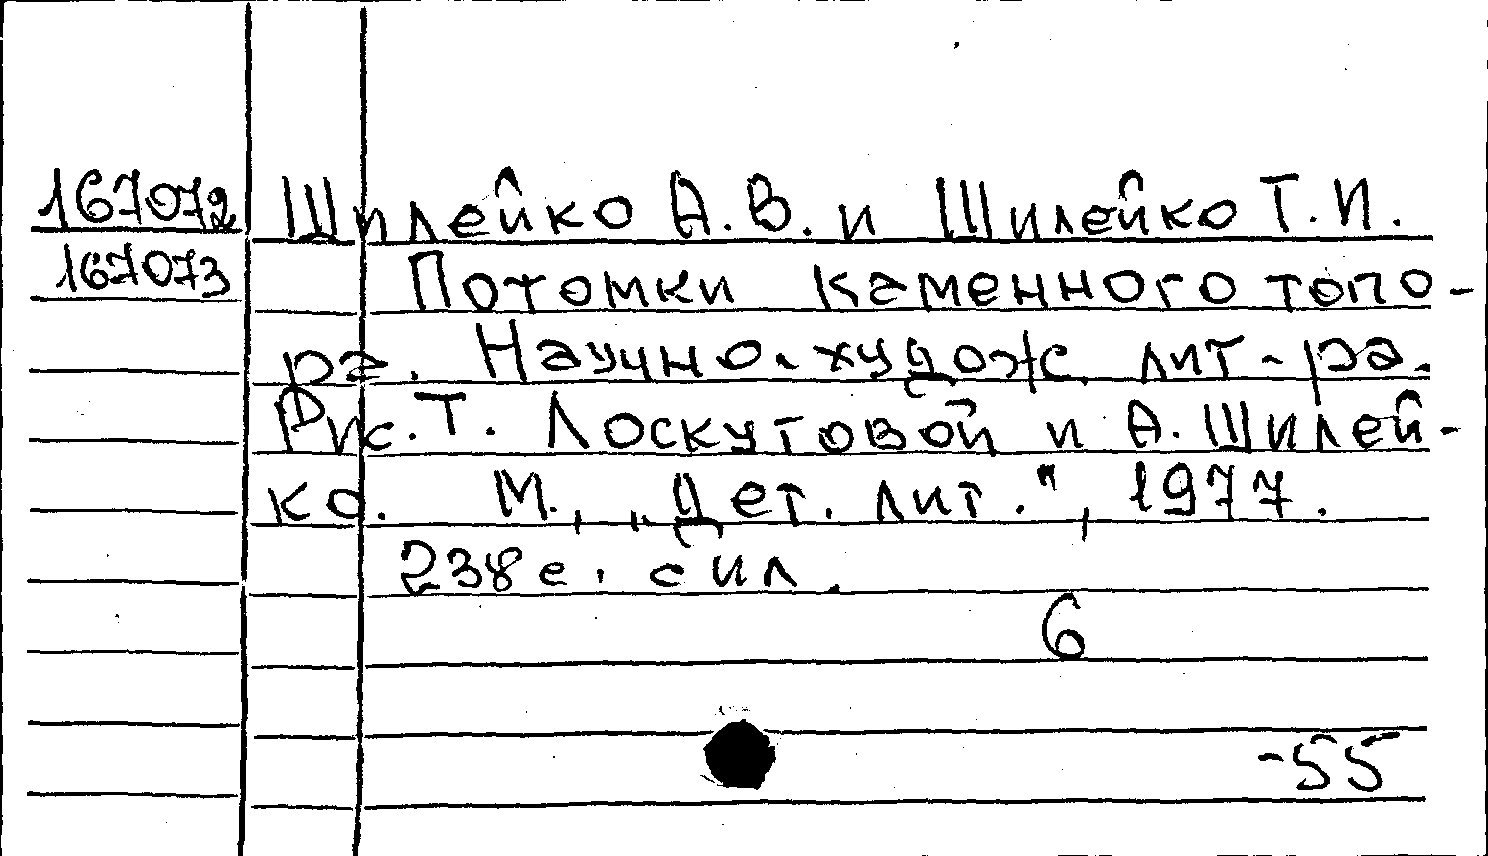 167072 Шилейко А.В. и Шилейко Т.И.
167073 Потомки каменного топо-
ра. Научно-худож. лит-ра.
Рис. Т. Лоскутовой и А. Шилей-
ко. М., „Дет. лит.", 1977.
238 с. с ил.
6
-55